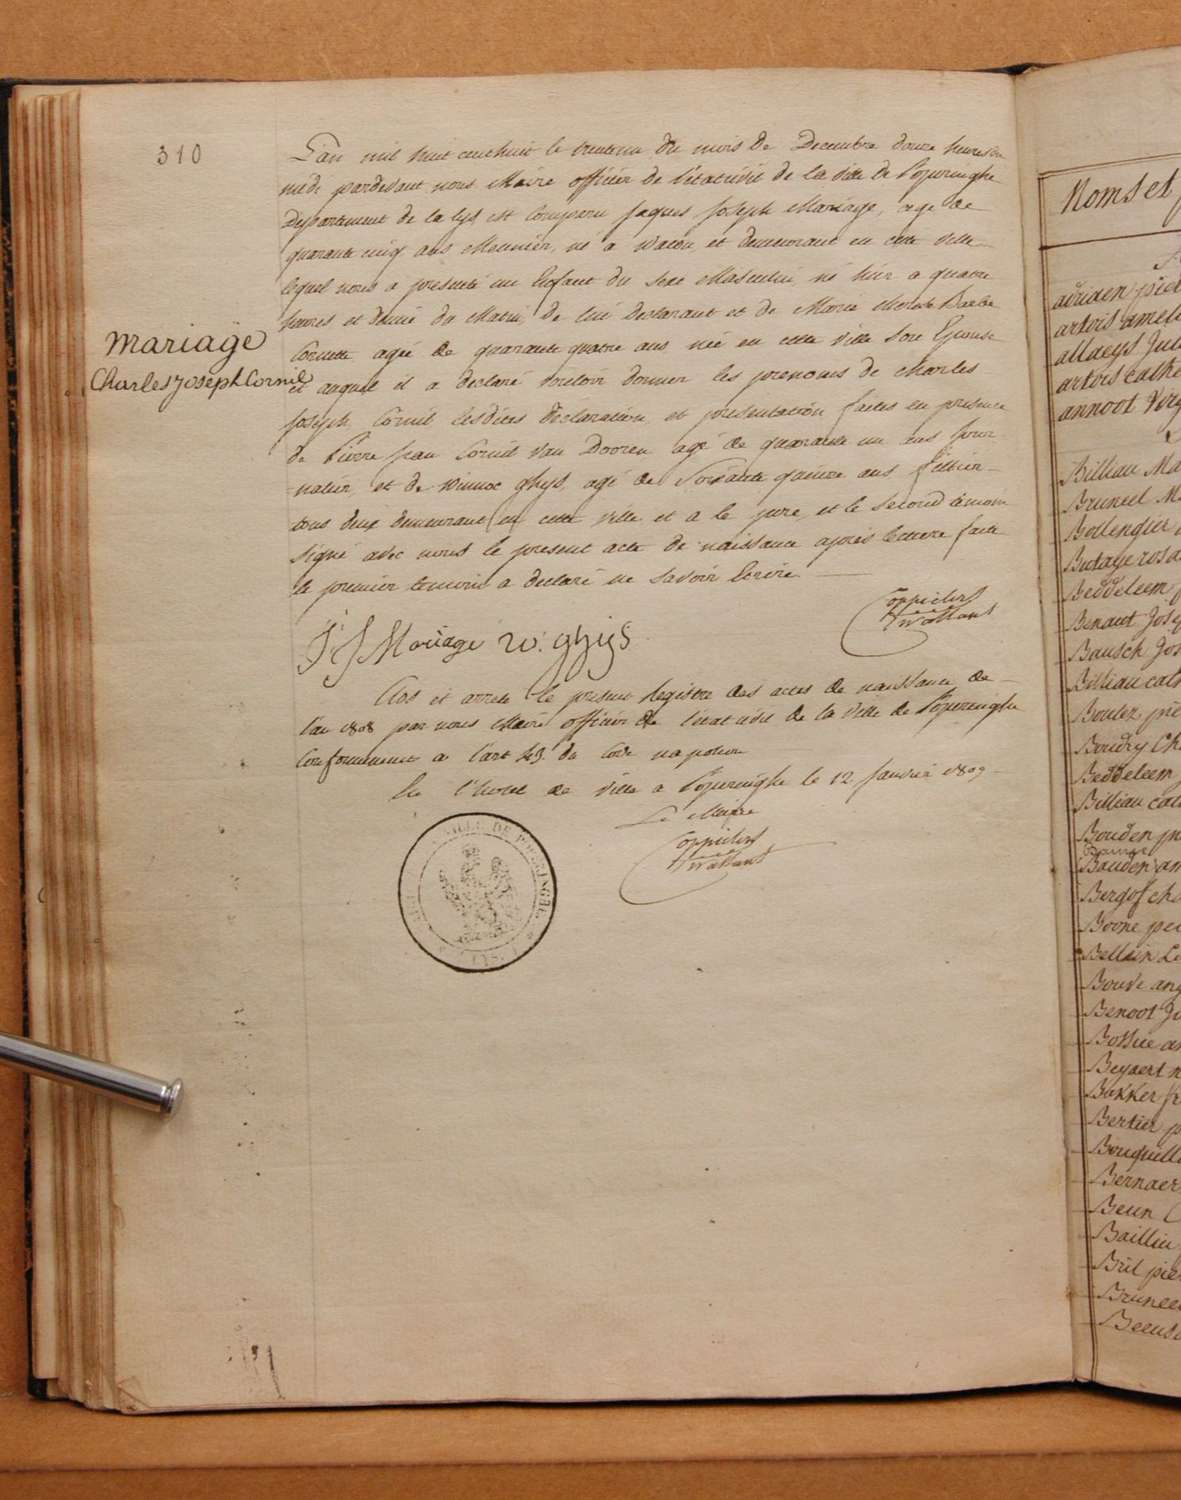 310
Mariage
Charles Joseph Cornil
L'an mil huit cent huit le trente un du mois de Decembre douze heures du
midi pardevant nous Maire officier de l'état civil de la ville de Poperinghe
Departement de la Lys est comparu Jaques Joseph Mariage, age de
quarante cinq ans Meunier, né a Watou, et demeurant en cette ville
lequel nous a presenté un Enfant du sexe Masculin, né hier a quatre
heures et demie du Matin, de lui declarant et de Marie Barbe
Cornette agée de quarante quatre ans née en cette ville Son Epouse
et auquel il a declaré vouloir donner les prenoms de Charles
Joseph Cornil lesdites declaration et presentation faites en presence
de Pierre Jean Cornil Van Dooren agé de quarante un ans Jour
nalier, et de Winnoc Ghys, agé de Soixante quinze ans
tous deux demeurant en cette ville et a le pere, et le second temoin
signé avec nous le present acte de naissance après lecture faite
le premier temoin a declaré ne savoir Ecrire
J: J Mariage w: ghijs
Clos et arreté le present Registre des actes de naissance de
l'an 1808 par nous Maire officier de l'etat civil de la Ville de Poperinghe
Conformement a l'art 43 du Code napoleon
En l'hotel de ville a Poperinghe le 12 Janvier 1809
Le Maire
VILLE DE POPERINGHE
LYS
Noms et
adriaen piet
artois amel
allaeys Jul
artois cathe
annoot Virg
Billiau Ma
Bruneel M
Bollengier
Butaye rosa
Beddeleem
Benaut Jose
Bausch Jos
Billiau cath
Boutez pie
Boudry Ch
Beddeleem
Billiau cat
Bouden pi
Bauden an
Bergof cha
Boone pe
Bellain Le
Bouve ang
Benoot Ju
Bossue an
Beyaert
Bakker fr
Bertier p
Bouquill
Bernaer
Beun
Bailliu
Bril pie
Bruneel
Beeus